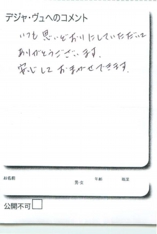 デジャ・ヴュへのコメント
いつも思いどおりにしていただいて
ありがとうございます。
安心しておまかせできます。
お名前 男・女 年齢 職業
公開不可